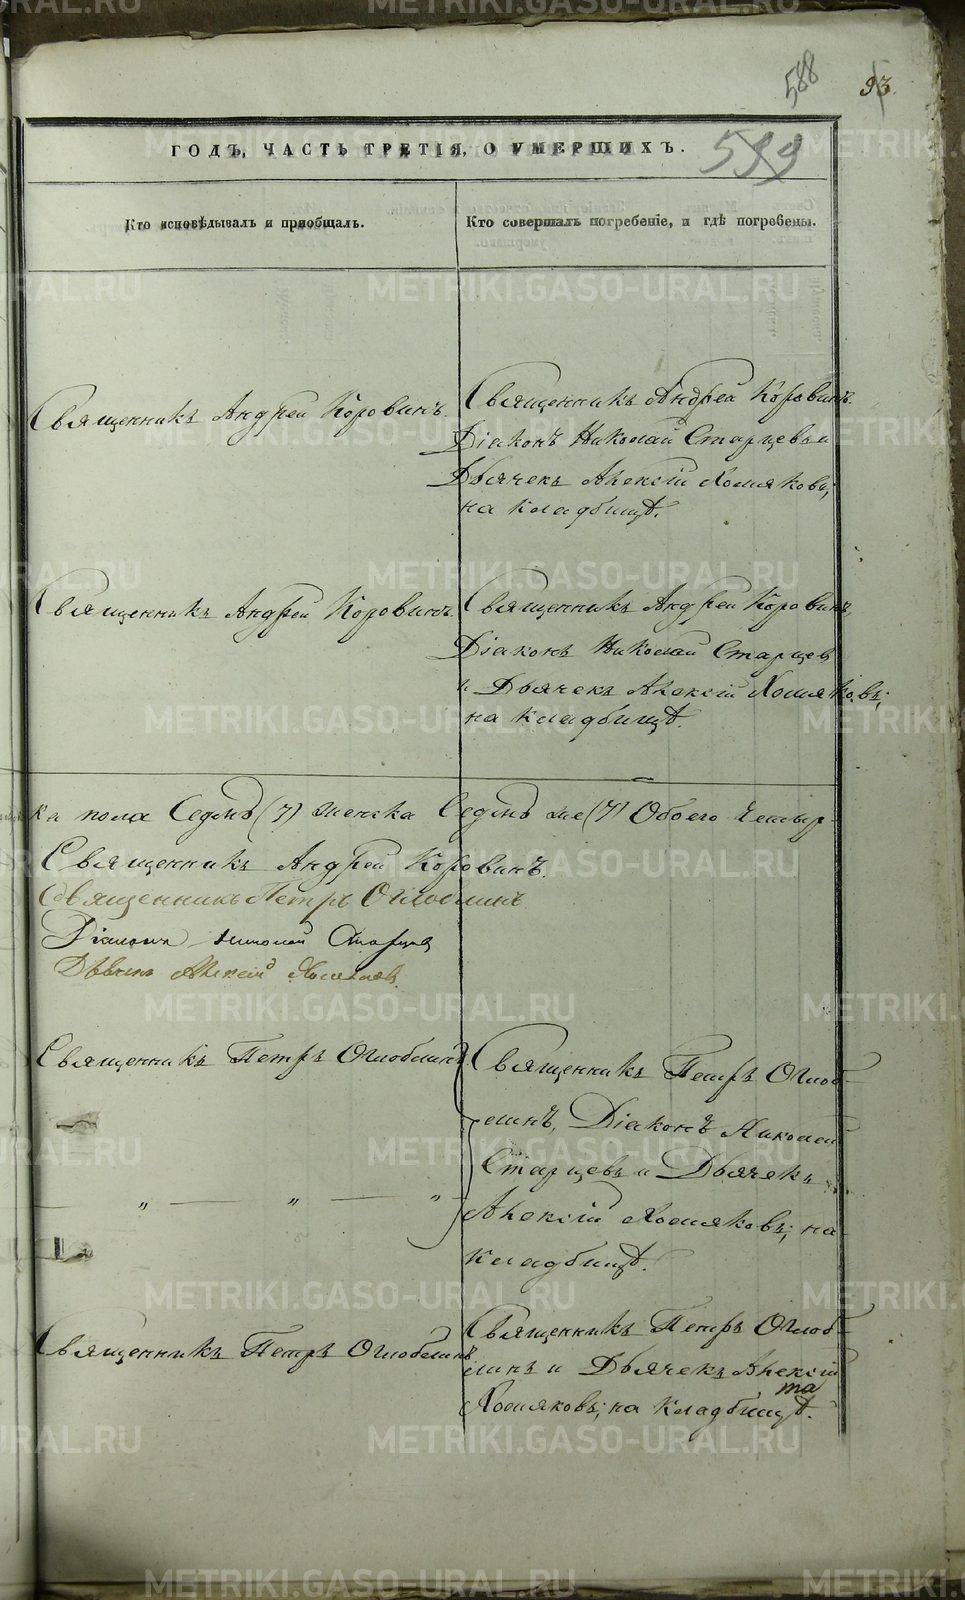 588
93
ГОДЪ, ЧАСТЬ ТРЕТІЯ, О УМЕРШИХЪ.
599
Кто исповѣдывалъ и приобщалъ.
Кто совершалъ погребеніе, и гдѣ погребены.
Священникъ Андрей Коровинъ.
Священникъ Андрей Коровинъ.
Діаконъ Николай Старцевъ и
Дьячекъ Алексій Хомяковъ;
на кладбищѣ.
Священникъ Андрей Коровинъ.
Священникъ Андрей Коровинъ,
Діаконъ Николай Старцев
и Дьячекъ Алексій Хомяковъ;
на кладбищѣ.
ка пола Седмь (7) женска Седмь же (7) Обоего Четыр-
Священникъ Андрей Коровинъ.
Священникъ Петръ Оглоблинъ
Діаконъ Николай Старцев
Дьячекъ Алексій Хомяков
Священникъ Петръ Оглоблинъ
Священникъ Петръ Оглоб-
линъ, Діаконъ Николай
Старцевъ и Дьячекъ
Алексій Хомяковъ; на
кладбищѣ.
" — " — "
Священникъ Петръ Оглоблинъ
Священникъ Петръ Оглоб-
линъ и Дьячекъ Алексій
Хомяковъ; на кладбищѣ.
METRIKI.GASO-URAL.RU